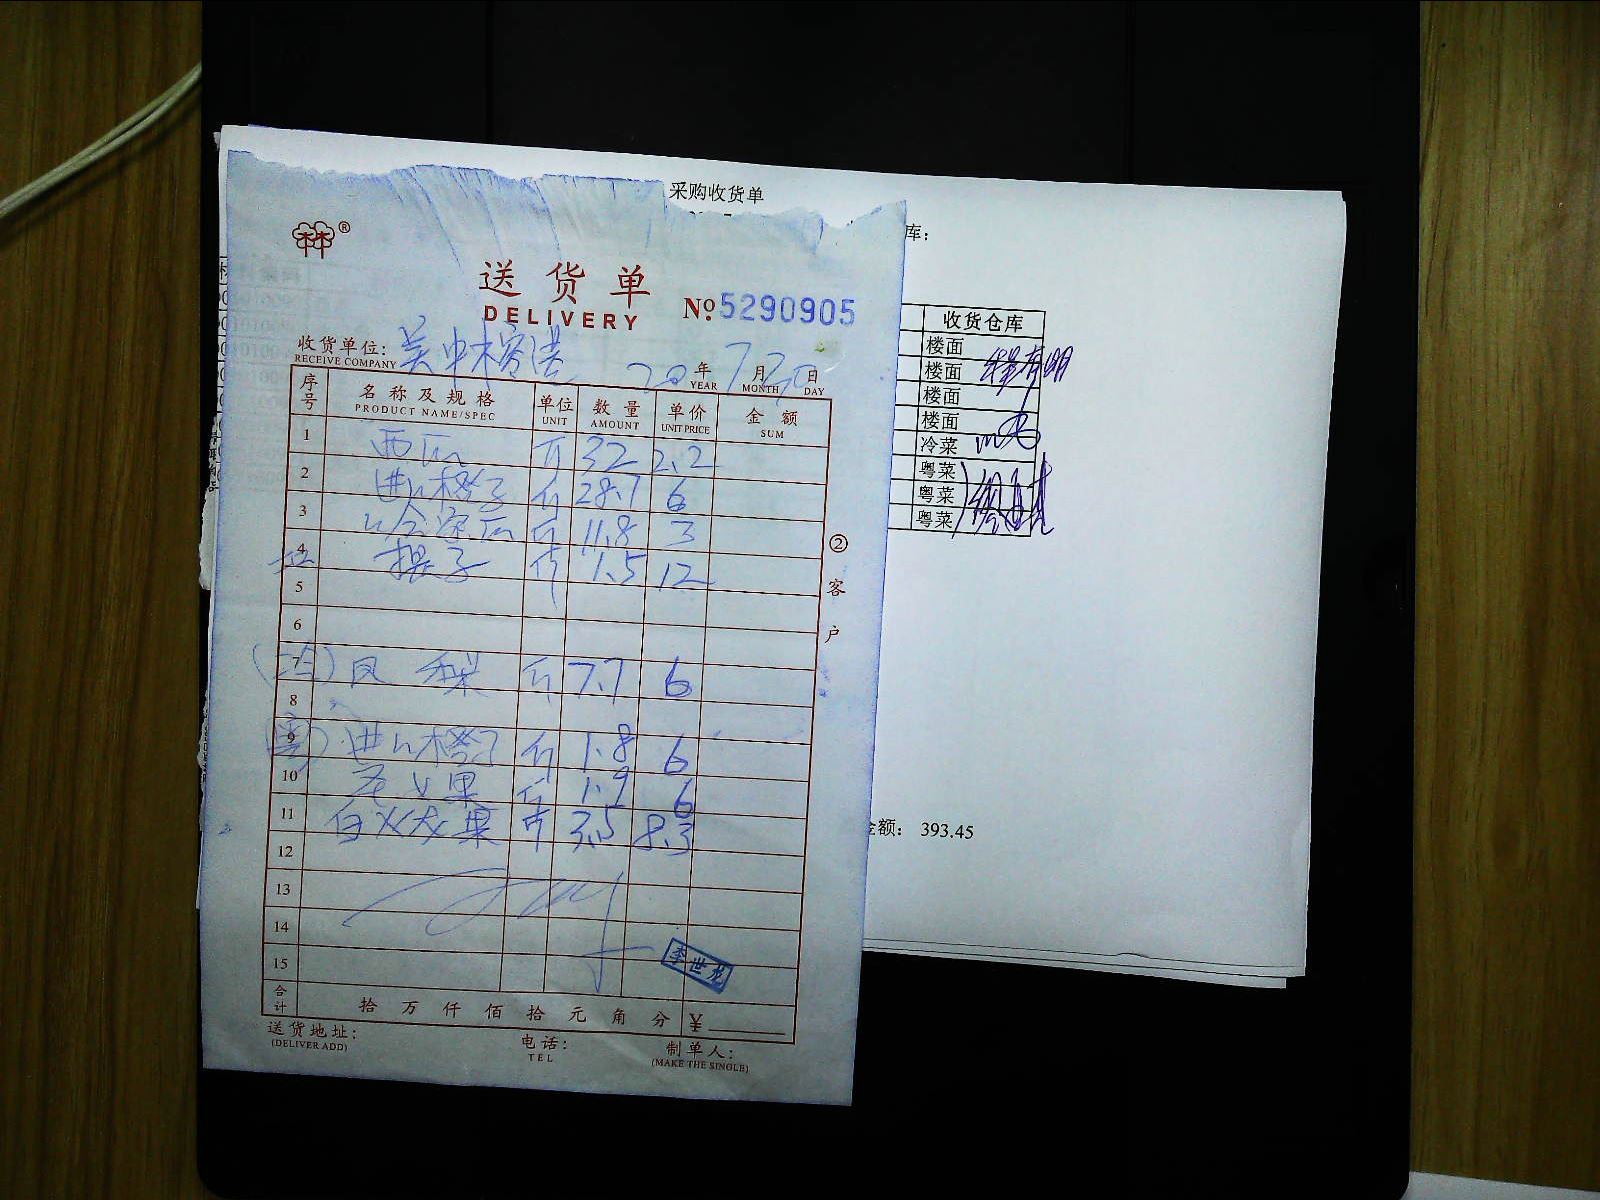 采购收货单
库：
®
送货单
DELIVERY
№ 5290905
收货单位：
RECEIVE COMPANY
20 年 7 月 20 日
YEAR MONTH DAY
序号 名称及规格 单位 数量 单价 金额
PRODUCT NAME/SPEC UNIT AMOUNT UNIT PRICE SUM
1 西瓜 斤 32 2.2
2 进口橙子 斤 28.7 6
3 斤 11.8 3
4 提子 斤 1.5 12
5
6
7 凤梨 斤 7.7 6
8
9 进口橙子 斤 1.8 6
10 果 斤 1.9 6
11 白火龙果 斤 3.5 8.3
12
13
14
15
合计 拾 万 仟 佰 拾 元 角 分 ¥
李世龙
送货地址：
(DELIVER ADD)
电话：
TEL
制单人：
(MAKE THE SINGLE)
②客户
收货仓库
楼面
楼面
楼面
楼面
冷菜
粤菜
粤菜
粤菜
金额： 393.45